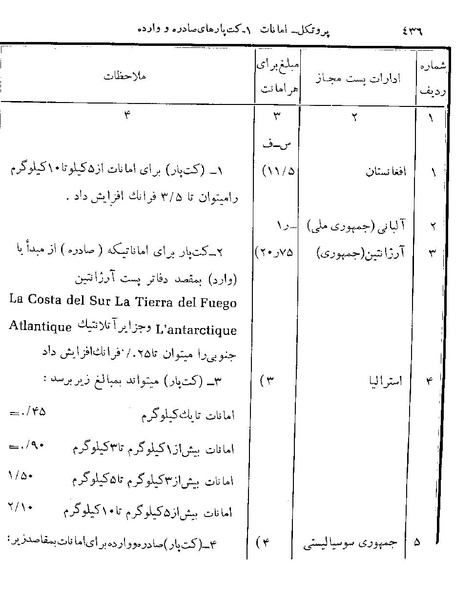 ۴۳۶ پروتکل ـ امانات ۱ـ کت‌پارهای صادره و وارده
شماره ردیف
ادارات پست مجاز
مبلغ برای هر امانت
ملاحظات
۱ ۲ ۳ ۴
س ـ ف
۱ افغانستان ۱۱/۵(۱ ۱ـ (کت‌پار) برای امانات از ۵کیلو تا ۱۰کیلوگرم
را میتوان تا ۳/۵ فرانک افزایش داد .
۲ آلبانی (جمهوری ملی) ۱ر ـ
۳ آرژانتین (جمهوری) ۷۵ر۰(۲ ۲ـ کت‌پار برای اماناتیکه (صادره) از مبدأ یا
(وارد) بمقصد دفاتر پست آرژانتین
La Costa del Sur La Tierra del Fuego
L'antarctique وجزایر آتلانتیک Atlantique
جنوبی را میتوان تا ۲۵./۰ فرانک افزایش داد
۴ استرالیا ۳) ۳ـ (کت‌پار) میتواند بمبالغ زیر برسد :
امانات تا یک کیلوگرم ۰/۴۵=
امانات بیش از ۱کیلوگرم تا ۳کیلوگرم ۰/۹۰=
امانات بیش از ۳کیلوگرم تا ۵کیلوگرم ۱/۵۰
امانات بیش از ۵کیلوگرم تا ۱۰کیلوگرم ۲/۱۰
۵ جمهوری سوسیالیستی ۴) ۴ـ (کت‌پار) صادره و وارده برای امانات بمقاصد زیر: